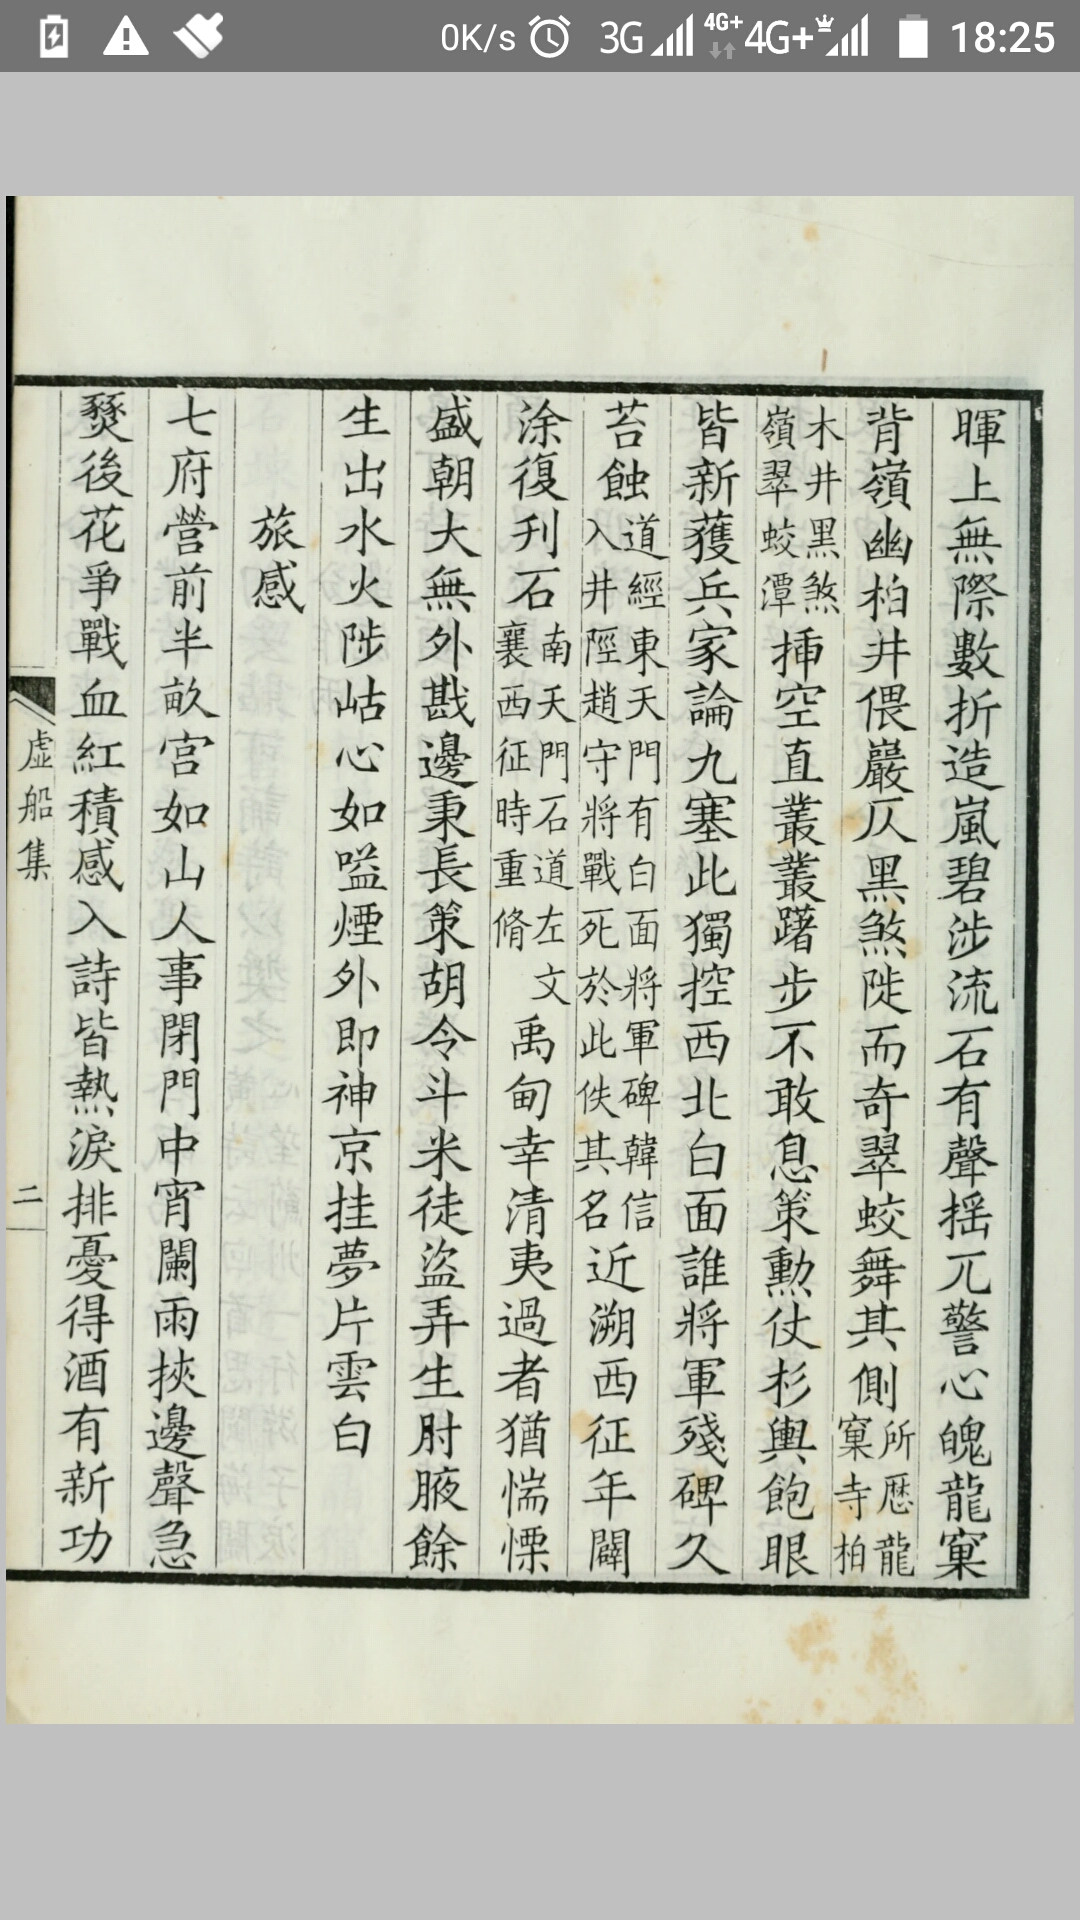 0K/s 3G 4G+ 4G+ 18:25
暉上無際數折造嵐碧涉流石有聲揺兀警心魄龍窠
背嶺幽柏井偎巖仄黑煞陡而奇翠蛟舞其側所歷龍窠寺柏
木井黑煞嶺翠蛟潭揷空直叢叢躇步不敢息策勳仗杉輿飽眼
皆新獲兵家論九塞此獨控西北白面誰將軍殘碑久
苔蝕道經東天門有白面將軍碑韓信入井陘趙守將戰死於此佚其名近溯西征年闢
涂復刋石南天門石道左文襄西征時重脩禹甸幸清夷過者猶惴慄
盛朝大無外戡邊秉長策胡令斗米徒盜弄生肘腋餘
生出水火陟岵心如嗌煙外即神京挂夢片雲白
旅感
七府營前半畝宮如山人事閉門中宵闌雨挾邊聲急
燹後花爭戰血紅積感入詩皆熱淚排憂得酒有新功
虛船集
二